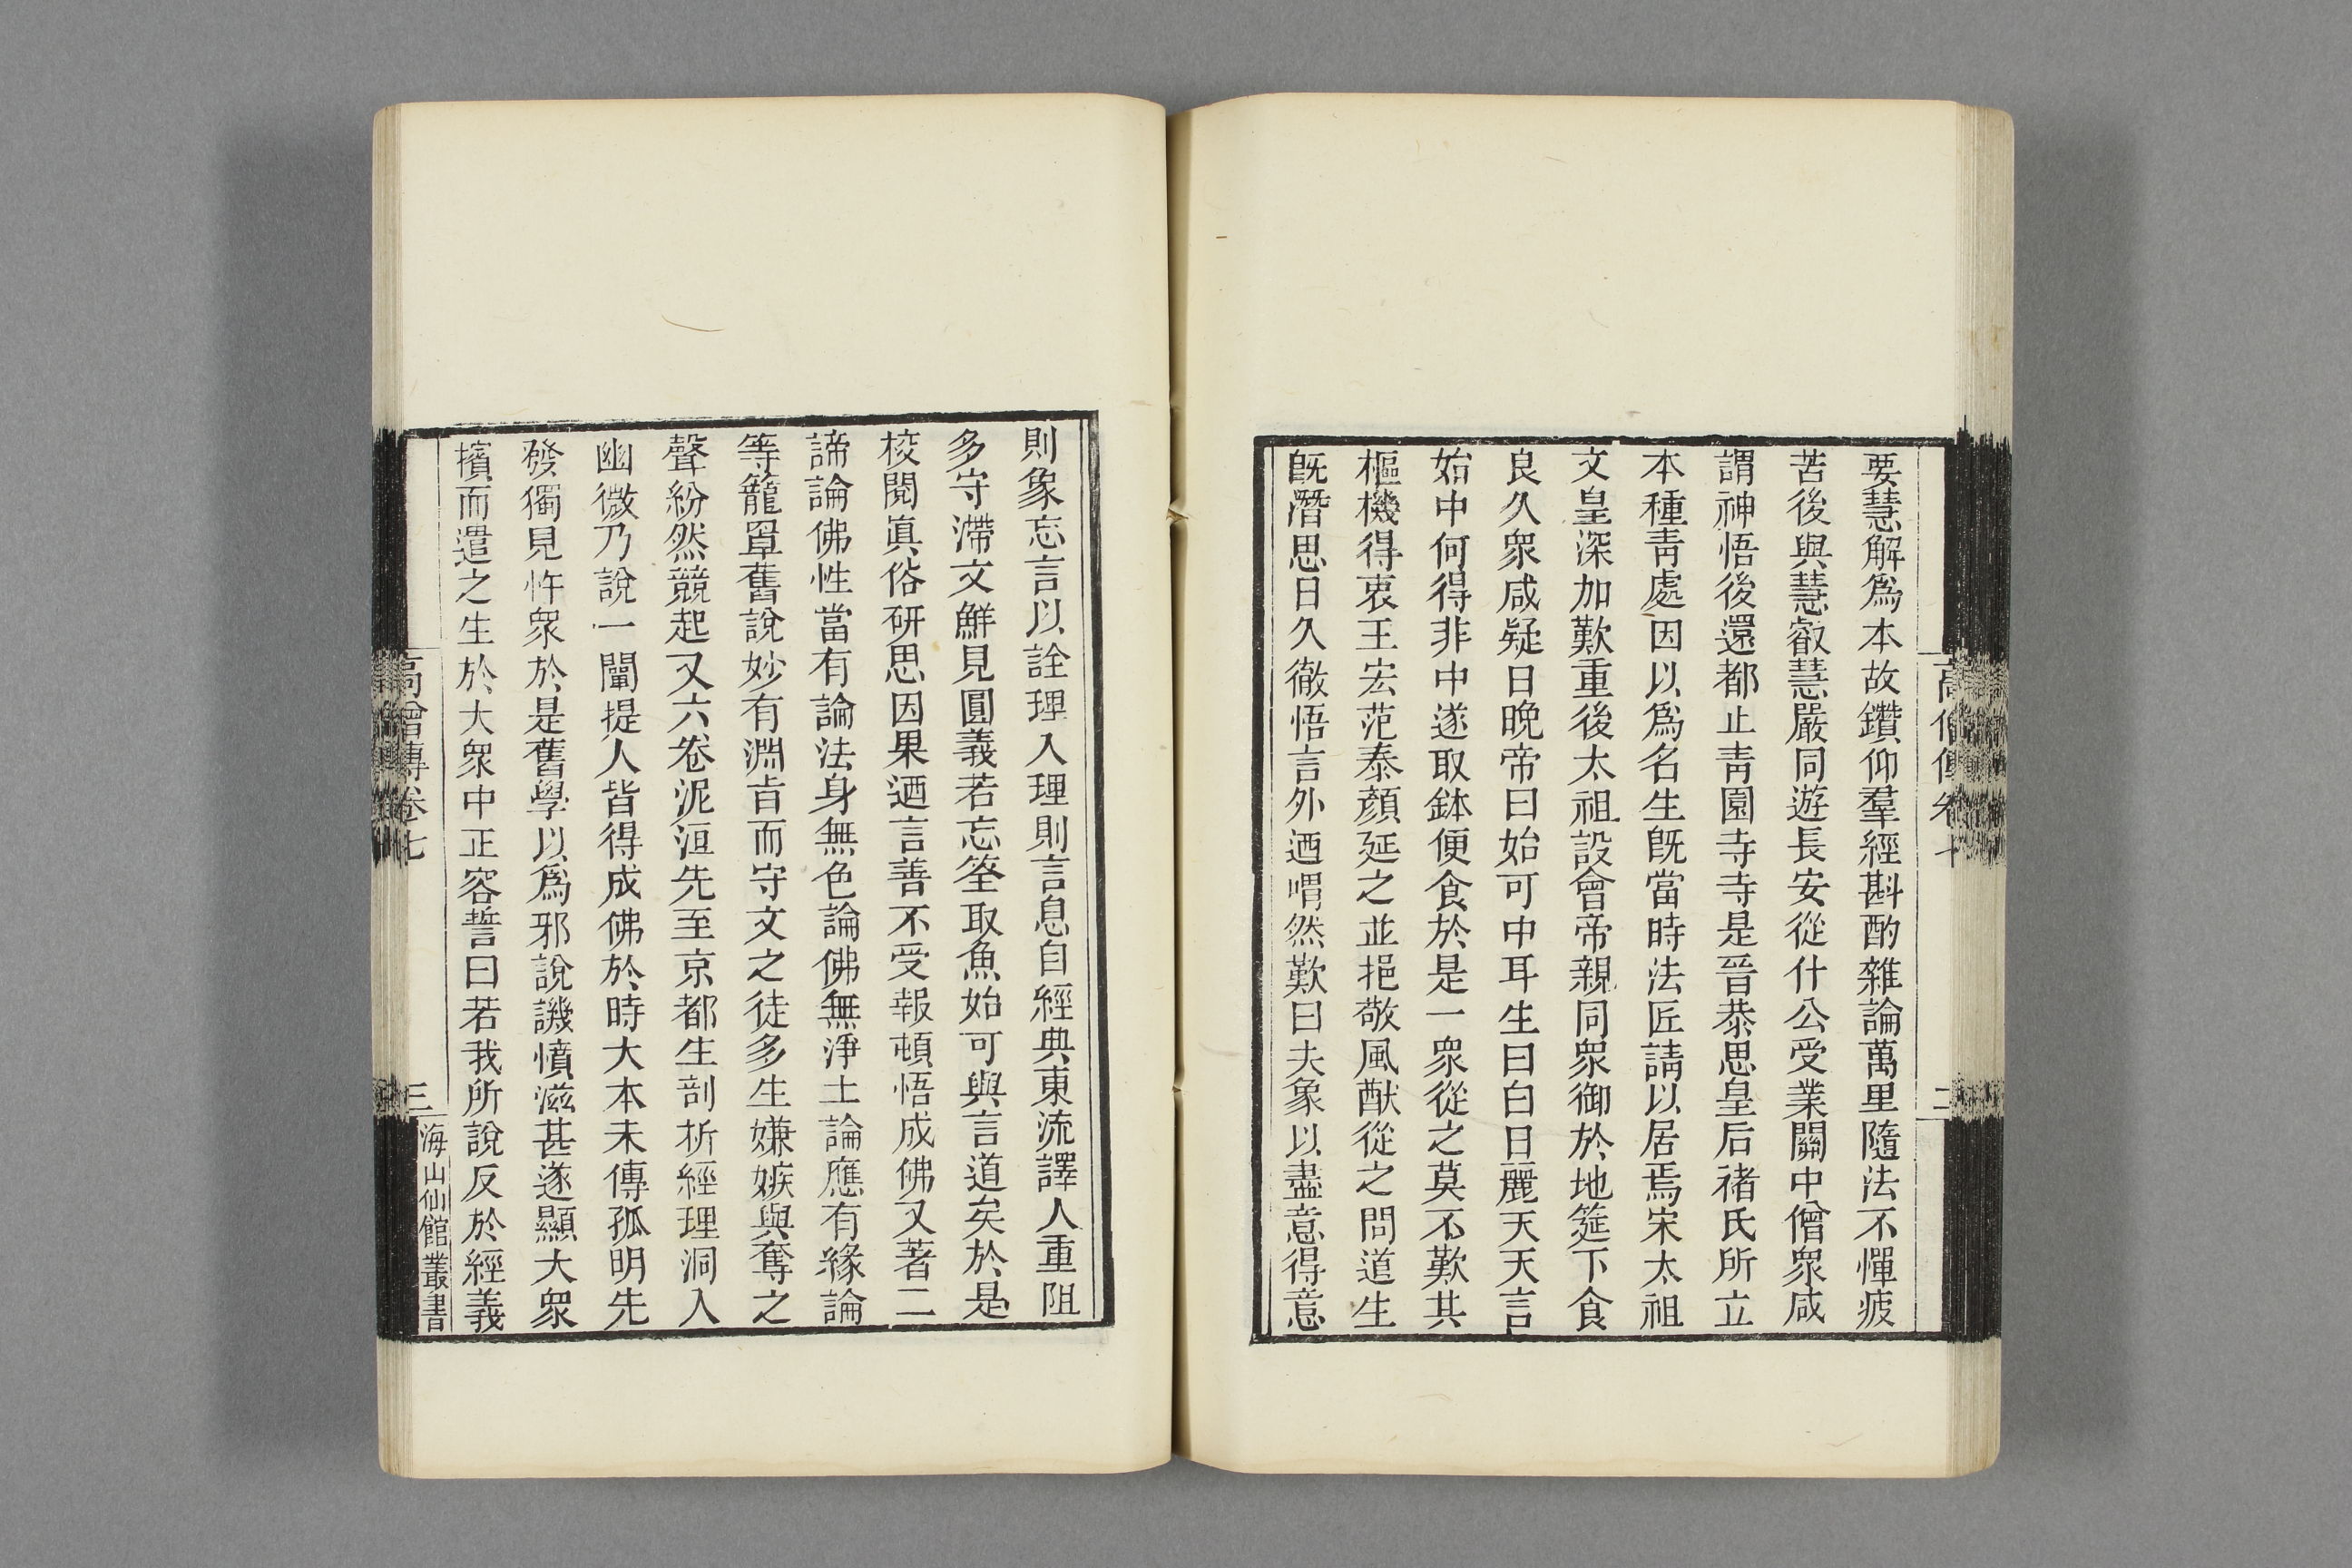 要慧解爲本故鑽仰羣經斟酌雜論萬里隨法不憚疲
苦後與慧叡慧嚴同遊長安從什公受業關中僧衆咸
謂神悟後還都止靑園寺寺是晉恭思皇后褚氏所立
本種靑處因以爲名生旣當時法匠請以居焉宋太祖
文皇深加歎重後太祖設會帝親同衆御於地筵下食
良久衆咸疑日晚帝曰始可中耳生曰白日麗天天言
始中何得非中遂取鉢便食於是一衆從之莫不歎其
樞機得衷王宏范泰顏延之並挹敬風猷從之問道生
旣潛思日久徹悟言外迺喟然歎曰夫象以盡意得意
則象忘言以詮理入理則言息自經典東流譯人重阻
多守滯文鮮見圓義若忘筌取魚始可與言道矣於是
校閱眞俗研思因果迺言善不受報頓悟成佛又著二
諦論佛性當有論法身無色論佛無淨土論應有緣論
等籠罩舊說妙有淵旨而守文之徒多生嫌嫉與奪之
聲紛然競起又六卷泥洹先至京都生剖析經理洞入
幽微乃說一闡提人皆得成佛於時大本未傳孤明先
發獨見忤衆於是舊學以爲邪說譏憤滋甚遂顯大衆
擯而遣之生於大衆中正容誓曰若我所說反於經義
高僧傳卷七
三
海山仙館叢書